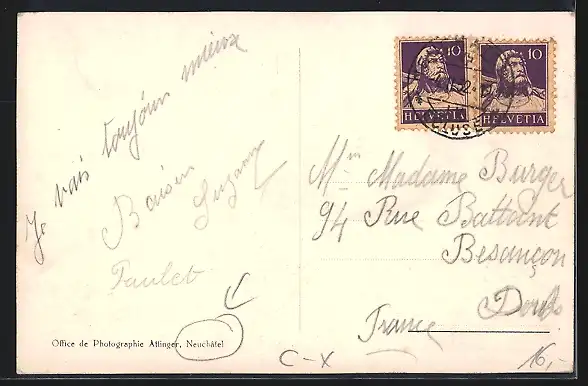 Je vais toujours mieux
Baisers
Suzanne
Paulet
Office de Photographie Attinger, Neuchâtel
10
HELVETIA
10
HELVETIA
Madame Burger
94 Rue Battant
Besançon
Doubs
France
C-X
16,-